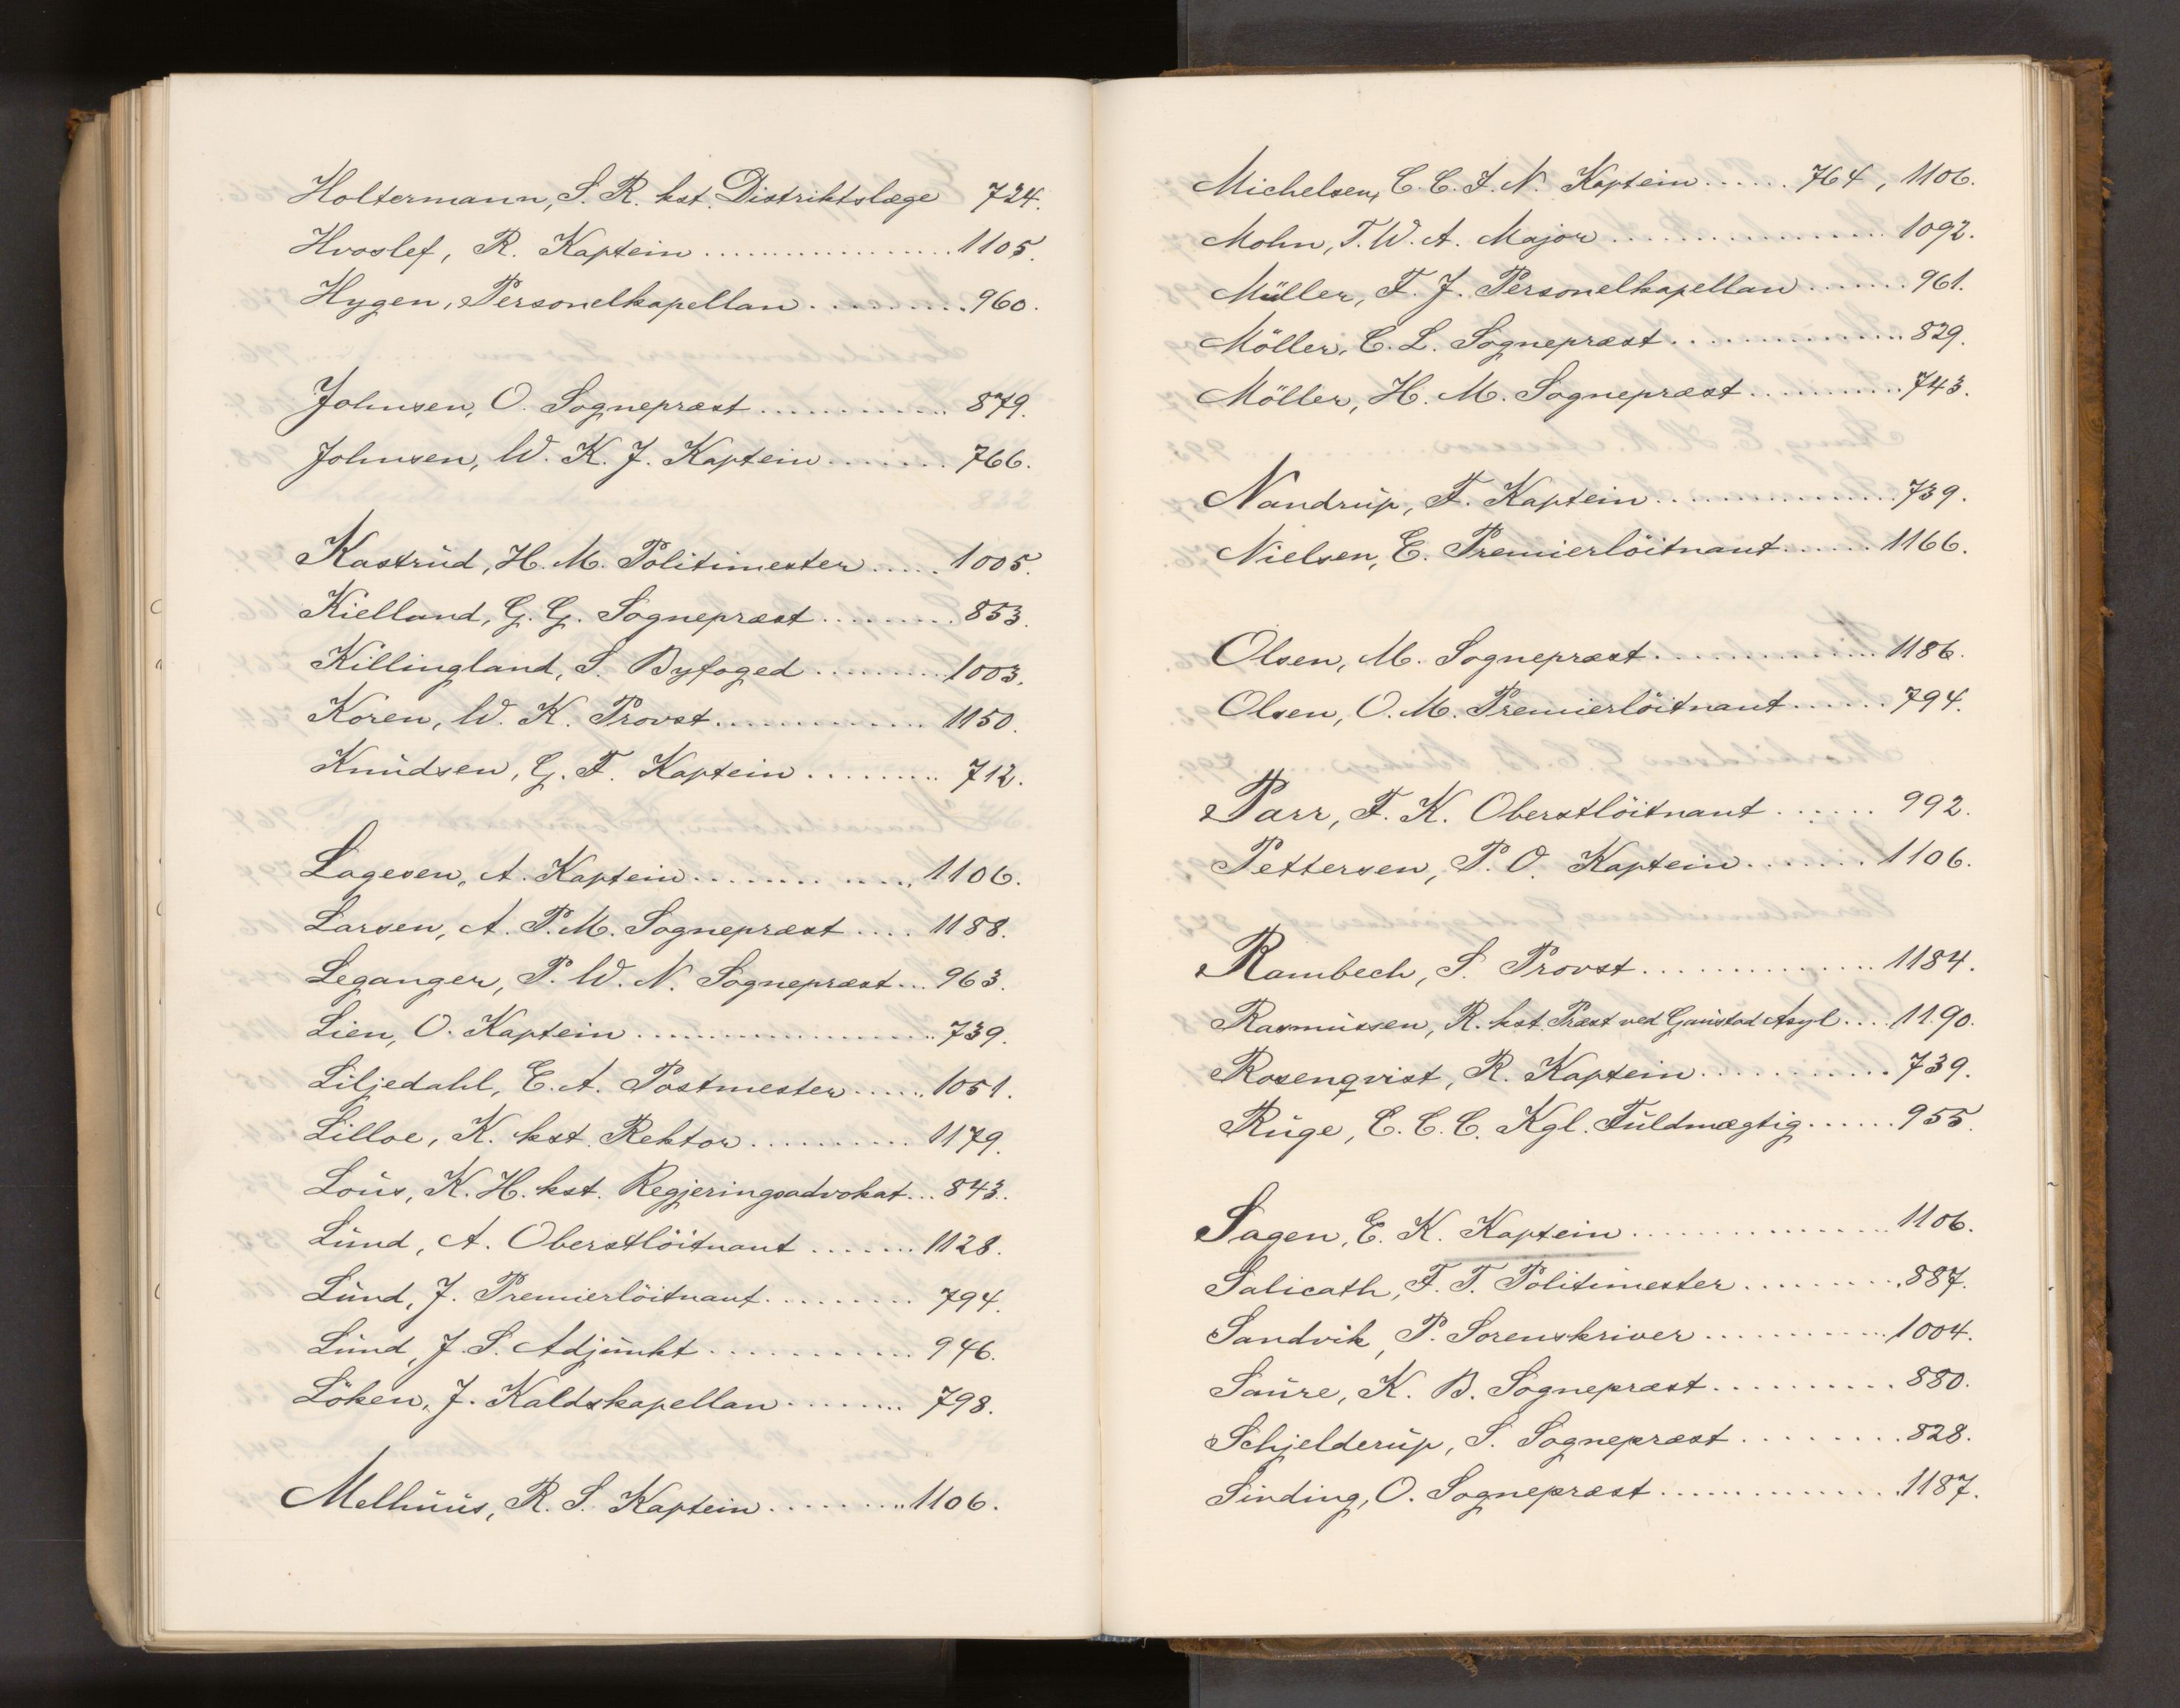 Holtermann, S. R. kst. Distriktslæge 724.
Hvoslef, R. Kaptein ................. 1105.
Hygen, Personelkapellan .......... 960.
Johnsen, O. Sognepræst ............ 879.
Johnsen, W. K. J. Kaptein ....... 766.
Kastrud, H. M. Politimester ..... 1005.
Kielland, G. G. Sognepræst ......... 853.
Killingland, S. Byfoged ......... 1003.
Koren, W. K. Provst ............. 1150.
Knudsen, G. F. Kaptein ......... 712.
Lagesen, A. Kaptein ............. 1106.
Larsen, A. P. M. Sognepræst .... 1188.
Leganger, P. W. N. Sognepræst ... 963.
Lien, O. Kaptein ................... 739.
Liljedahl, E. A. Postmester ...... 1051.
Lilloe, K. kst. Rektor .......... 1179.
Lous, K. H. kst. Regjeringsadvokat ... 843.
Lund, A. Oberstlöitnant ....... 1128.
Lund, J. Premierlöitnant ......... 794.
Lund, J. S. Adjunkt ............ 946.
Löken, J. Kaldskapellan ........ 798.
Melhuus, R. S. Kaptein ......... 1106.
Michelsen, C. C. F. N. Kaptein ...... 764, 1106.
Mohn, T. W. A. Major ................ 1092.
Müller, F. J. Personelkapellan ....... 961.
Möller, C. L. Sognepræst .............. 829.
Möller, H. M. Sognepræst .......... 743.
Nandrup, F. Kaptein ............... 739.
Nielsen, E. Premierlöitnant ...... 1166.
Olsen, M. Sognepræst .............. 1186.
Olsen, O. M. Premierlöitnant ...... 794.
Parr, F. K. Oberstlöitnant ...... 992.
Pettersen, P. O. Kaptein ....... 1106.
Rambech, S. Provst .............. 1184.
Rasmussen, R. kst. Præst ved Gaustad Asyl .... 1190.
Rosenqvist, R. Kaptein ........... 739.
Ruge, C. C. C. Kgl. Fuldmægtig ...... 955.
Sagen, E. K. Kaptein ............... 1106.
Salicath, F. T. Politimester ......... 887.
Sandvik, P. Sorenskriver ............ 1004.
Saure, K. B. Sognepræst .......... 880.
Schjelderup, S. Sognepræst ........ 828.
Sinding, O. Sognepræst ............. 1187.